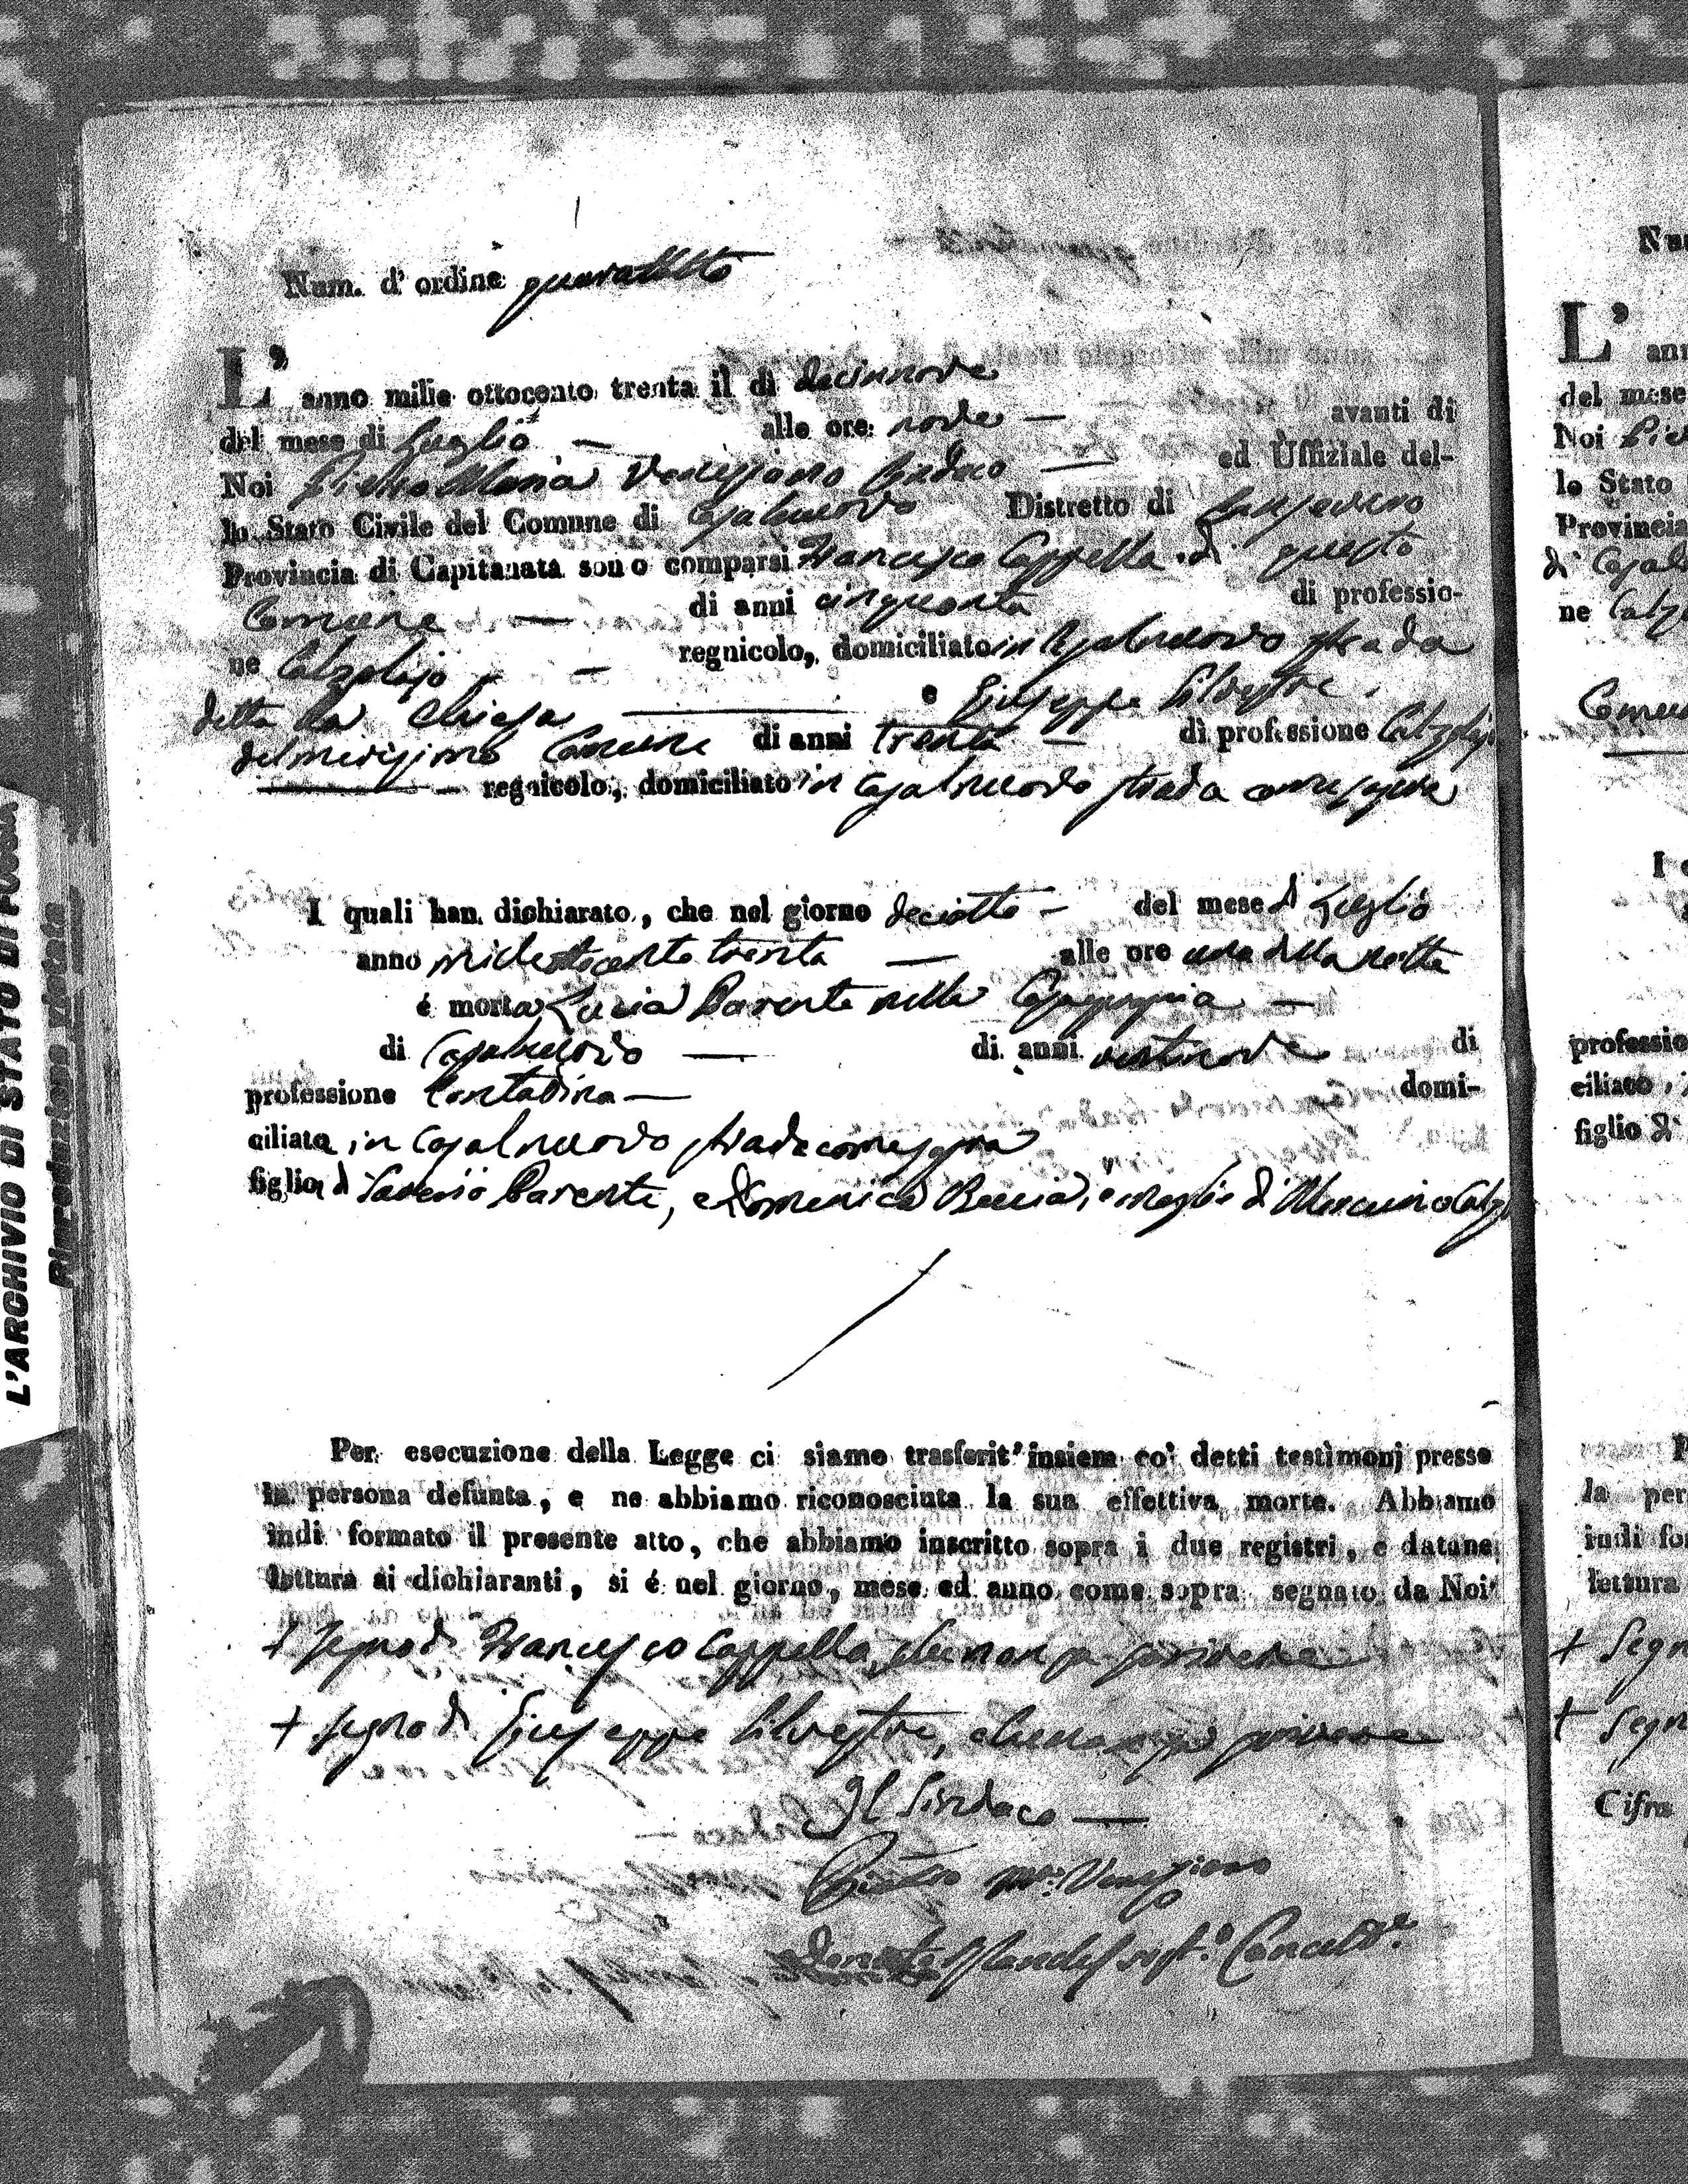 Num. d' ordine quarantotto
L' anno mille ottocento trenta il dì diecinnove
del mese di Luglio — alle ore nove — avanti di
Noi Pietro Maria Veneziano Sindaco — ed Uffiziale del-
lo Stato Civile del Comune di Casalnuovo Distretto di Sansevero
Provincia di Capitanata sono comparsi Francesco Cappella di questo
Comune — di anni cinquanta di professio-
ne Calzolajo — regnicolo, domiciliato in Casalnuovo strada
detta la Chiesa — e Giuseppe Silvestre
del medesimo Comune di anni trenta — di professione Calzolajo
— regnicolo, domiciliato in Casalnuovo strada
I quali han dichiarato, che nel giorno deciotto — del mese di Luglio
anno milleottocento trenta — alle ore una della notte
é morta Lucia Parente nella —
di Casalnuovo — di anni ventinove di
professione Contadina — domi-
ciliata in Casalnuovo strada
figlia di Saverio Parente, e Domenica Beccia, e moglie di
Per esecuzione della Legge ci siamo trasferit' insiem co' detti testimonj presso
la persona defunta, e ne abbiamo riconosciuta la sua effettiva morte. Abbiamo
indi formato il presente atto, che abbiamo inscritto sopra i due registri, e datane
lettura ai dichiaranti, si é nel giorno, mese ed anno come sopra segnato da Noi
+ Segno di Francesco Cappella, che non sa scrivere
+ Segno di Giuseppe Silvestre, che non sa scrivere
Il Sindaco —
Pietro Ma: Veneziano
Donato Cancell.e
L'ARCHIVIO DI STATO DI FOGGIA
Riproduzione vietata
L'
del mese
Noi
lo Stato
Provincia
ne
professio
ciliato,
figlio di
la per
indi fo
lettura
+ Segn
+ Segn
Cifra